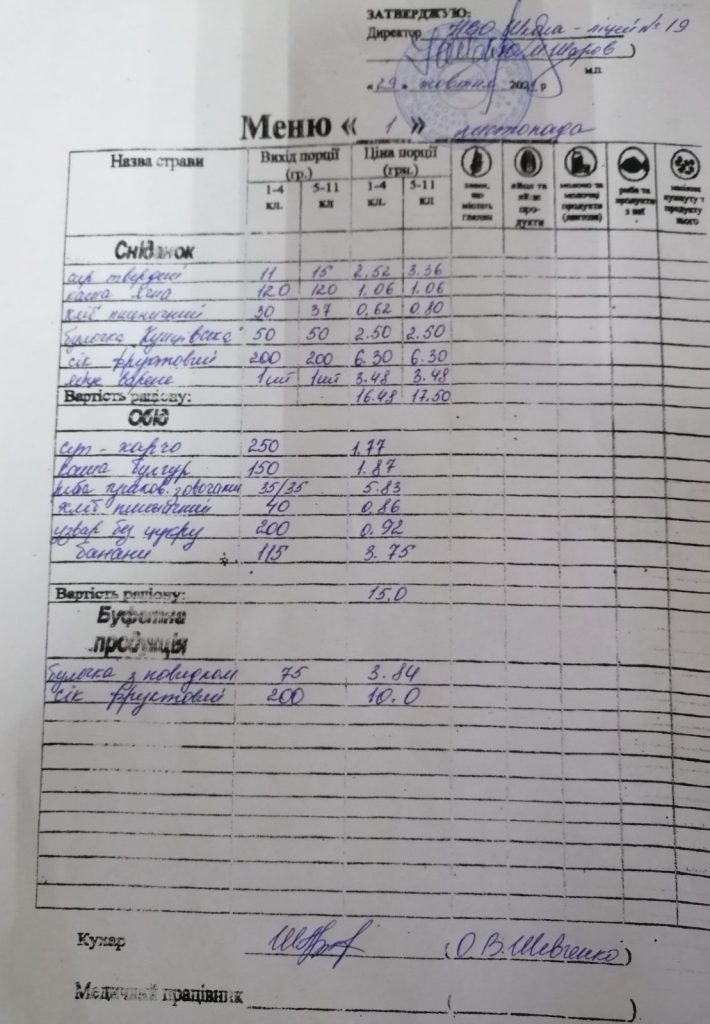 ЗАТВЕРДЖУЮ:
Директор НВО Школа-ліцей № 19
Ю.М. Шаров )
м.п.
« 29 » жовтня 2021 р
Меню « 1 » листопада
Назва страви Вихід порції (гр.) Ціна порції (грн.)
1-4 кл. 5-11 кл 1-4 кл. 5-11 кл
злаки, що містять глютен
яйця та яйце продукти
молоко та молочні продукти (лактоза)
риба та продукти з неї
насіння кунжуту т продукту нього
Сніданок
сир твердий 11 15 2.52 3.36
каша ячна 120 120 1.06 1.06
хліб пшеничний 30 37 0,62 0,80
булочка "Кунцівська" 50 50 2.50 2.50
сік фруктовий 200 200 6.30 6.30
яйце варене 1шт 1шт 3.48 3.48
Вартість раціону: 16.48 17.50
Обід
суп-харчо 250 1.77
каша булгур 150 1.87
риба припов. з овочами 35/35 5.83
хліб пшеничний 40 0,86
узвар без цукру 200 0.92
банани 115 3.75
Вартість раціону: 15.0
Буфетна
продукція
булочка з повидлом 75 3.84
сік фруктовий 200 10.0
Кухар ( О.В. Шевченко )
Медичний працівник ( )